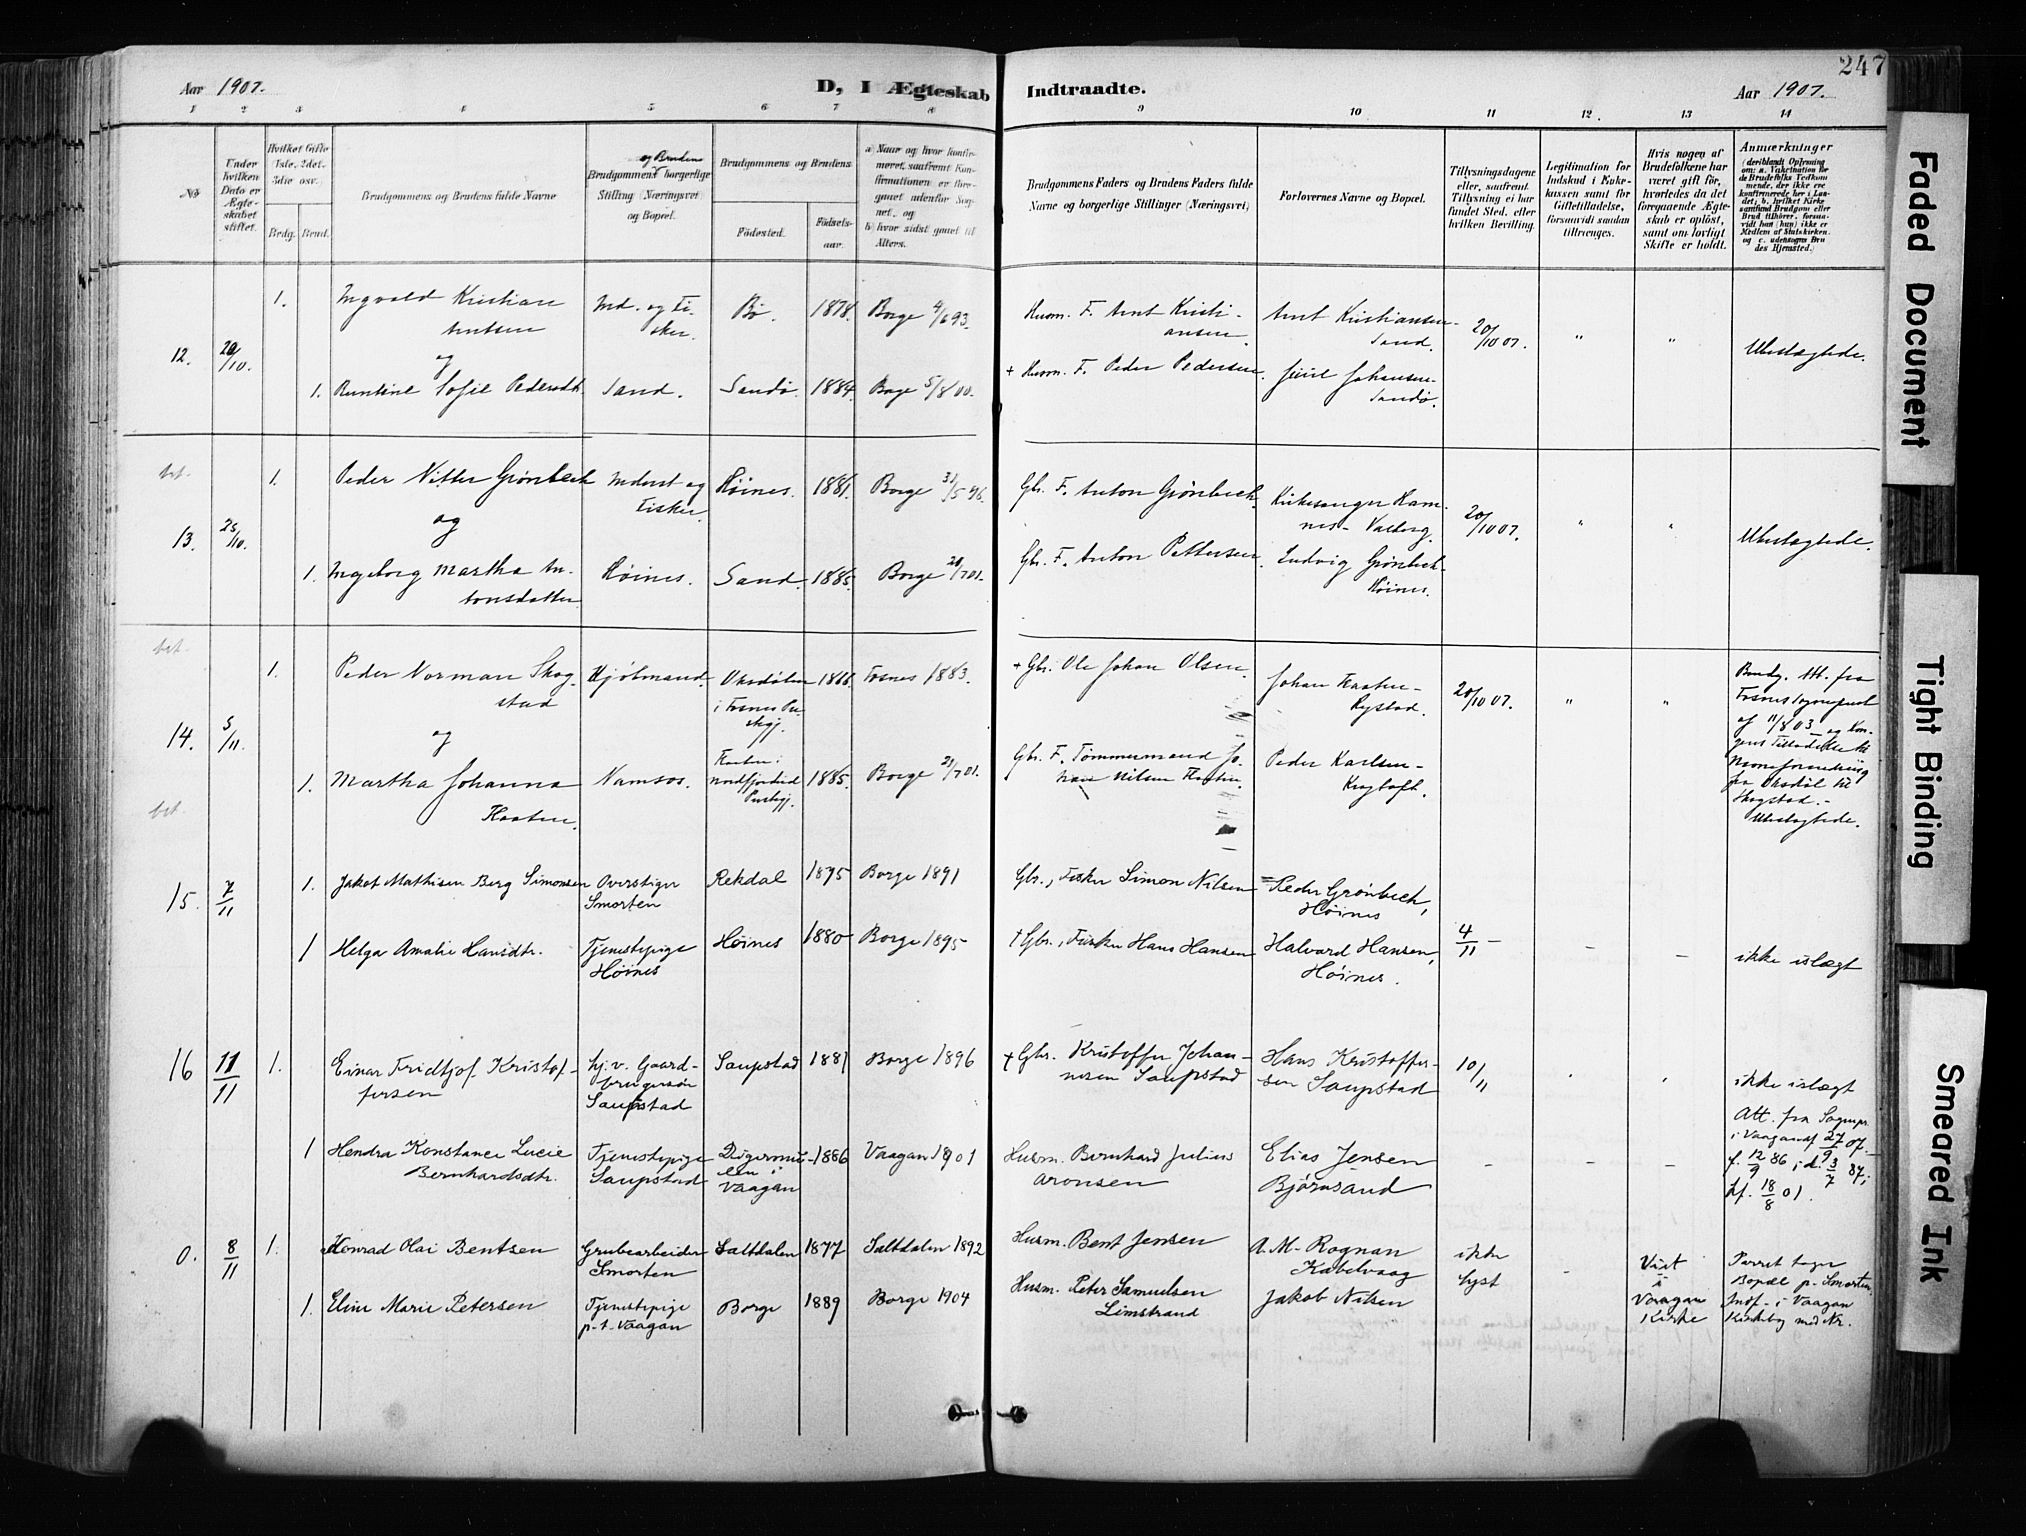 247
Aar 1907.
D, I Ægteskab Indtraadte.
Aar 1907.
1 2 3 4 5 6 7 8 9 10 11 12. 13 14
No
Under hvilken Dato er Ægteskabet stiftet.
Hvilket Gifte 1ste, 2det, 3die osv.
Brdg. Brud.
Brudgommens og Brudens fulde Navne
Brudgommens og Brudens borgerlige Stilling (Næringsvei) og Bopæl.
Brudgommens og Brudens
Fødested.
Fødsels-aar.
a) Naar og hvor konfirmeret, saafremt Konfirmationen er foregaaet udenfor Sognet, og
b) hvor sidst gaaet til Alters.
Brudgommens Faders og Brudens Faders fulde Navne og borgerlige Stillinger (Næringsvei)
Forlovernes Navne og Bopæl.
Tillysningsdagene eller, saafremt Tillysning ei har fundet Sted, efter hvilken Bevilling.
Legitimation for Indskud i Enkekassen samt for Giftetilladelse, forsaavidt saadan tiltrænges.
Hvis nogen af Brudefolkene har været gift før, hvorledes da det forgaaende Ægteskab er opløst, samt om lovligt Skifte er holdt.
Anmærkninger
12. 20/10. 1. Ingvald Kristian Arntsen Ind. og Fisker. Bø. 1878. Borge 4/6 93. Husm. F. Arnt Kristiansen. Arnt Kristiansen - Sand. 20/10 07. " " Ubeslægtede.
og
1. Runtine Sofie Pedersdtr. Sand. Sandø. 1884. Borge 5/8 00. + Husm. F. Peder Pedersen. Johansen - Sandø.
bet.
13. 25/10. 1. Peder Nitter Grønbech Inderst og Fisker. Høines. 1881. Borge 31/5 96. Gbr. F. Anton Grønbech. Kirkesanger Hamnes - Valberg. 20/10 07. " " Ubeslægtede.
og
1. Ingeborg Martha Antonsdatter. Høines. Sand. 1885. Borge 21/7 01. Gbr. F. Anton Pettersen. Ludvig Grønbech - Høines.
bet.
14. 5/11. 1. Peder Norman Skogstad Kjøbmand. Oksdølen i Fosnes Præstgj. 1866. Fosnes 1883. + Gbr. Ole Johan Olsen. Johan Haaten - Rystad. 20/10 07. " " Brudg. Att. fra Fosnes Sogneprest af 11/8 03 og Kongens Tilladelse til Navneforandring fra Oksdøl til Skogstad. - Ubeslægtede.
og
1. Martha Johanna Haaten. Namsos. Nordfjordeid Prestgj. 1885. Borge 21/7 01. Gbr. F. Tømmermand Johan Nilsen Haaten. Peder Karlsen -
bet.
15. 7/11 1. Jakob Mathisen Berg Simonsen Overstiger Smorten Rekdal 1875 Borge 1891 Gbr., Fisker Simon Nilsen Peder Grønbech, Høines
1 Helga Amalie Hansdtr. Tjenestepige Høines Høines 1880 Borge 1895 † Gbr., Fisker Hans Hansen Halvard Hansen, Høines. 4/11 - - - ikke islægt
16 11/11 1. Einar Fridtjof Kristoffersen hj.v. Gaardbrugersøn Saupstad Saupstad 1881 Borge 1896 + Gbr. Kristoffer Johannesen Saupstad Hans Kristoffersen Saupstad 10/11 ikke islægt
1 Hendra Konstance Lucie Bernhardsdtr. Tjenestepige Saupstad Digermulen i Vaagan 1886 Vaagan 1901 Husm. Bernhard Julius Aronsen Elias Jensen Bjørnsand - - - Att. fra Sognepr. i Vaagan af 27/9 07. f. 12/9 86, i.d. 3/7 87, kf. 18/8 01.
0. 8/11 1. Konrad Olai Bentsen Grubearbeider Smorten Saltdalen 1877 Saltdalen 1892 Husm. Bent Jensen A. M. Rognan Kabelvaag ikke lyst - Viet i Vaagan Kirke Parret tager Bopæl p. Smorten, Indf. i Vaagan Kirkebog med Nr.
1. Eline Marie Petersen Tjenestepige p.t. Vaagan Borge 1889 Borge 1904 Husm. Peter Samuelsen Limstrand Jakob Nilsen
Faded Document
Tight Binding
Smeared Ink